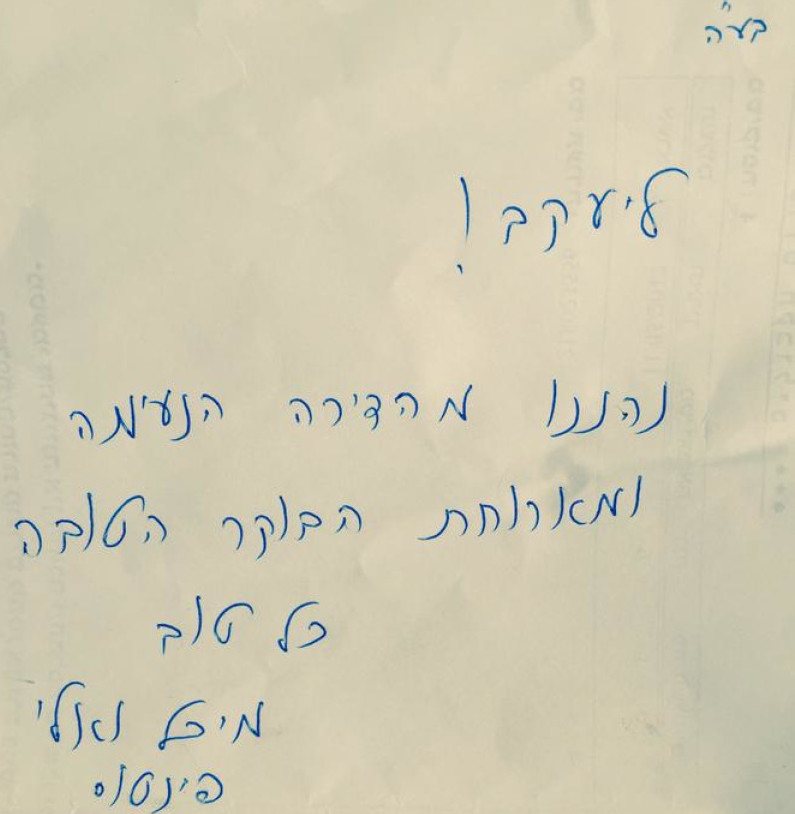 בע"ה
ליעקב!
נהננו מהדירה הנעימה
ומארוחת הבוקר הטובה
כל טוב
מיכל ואלי
פינטו